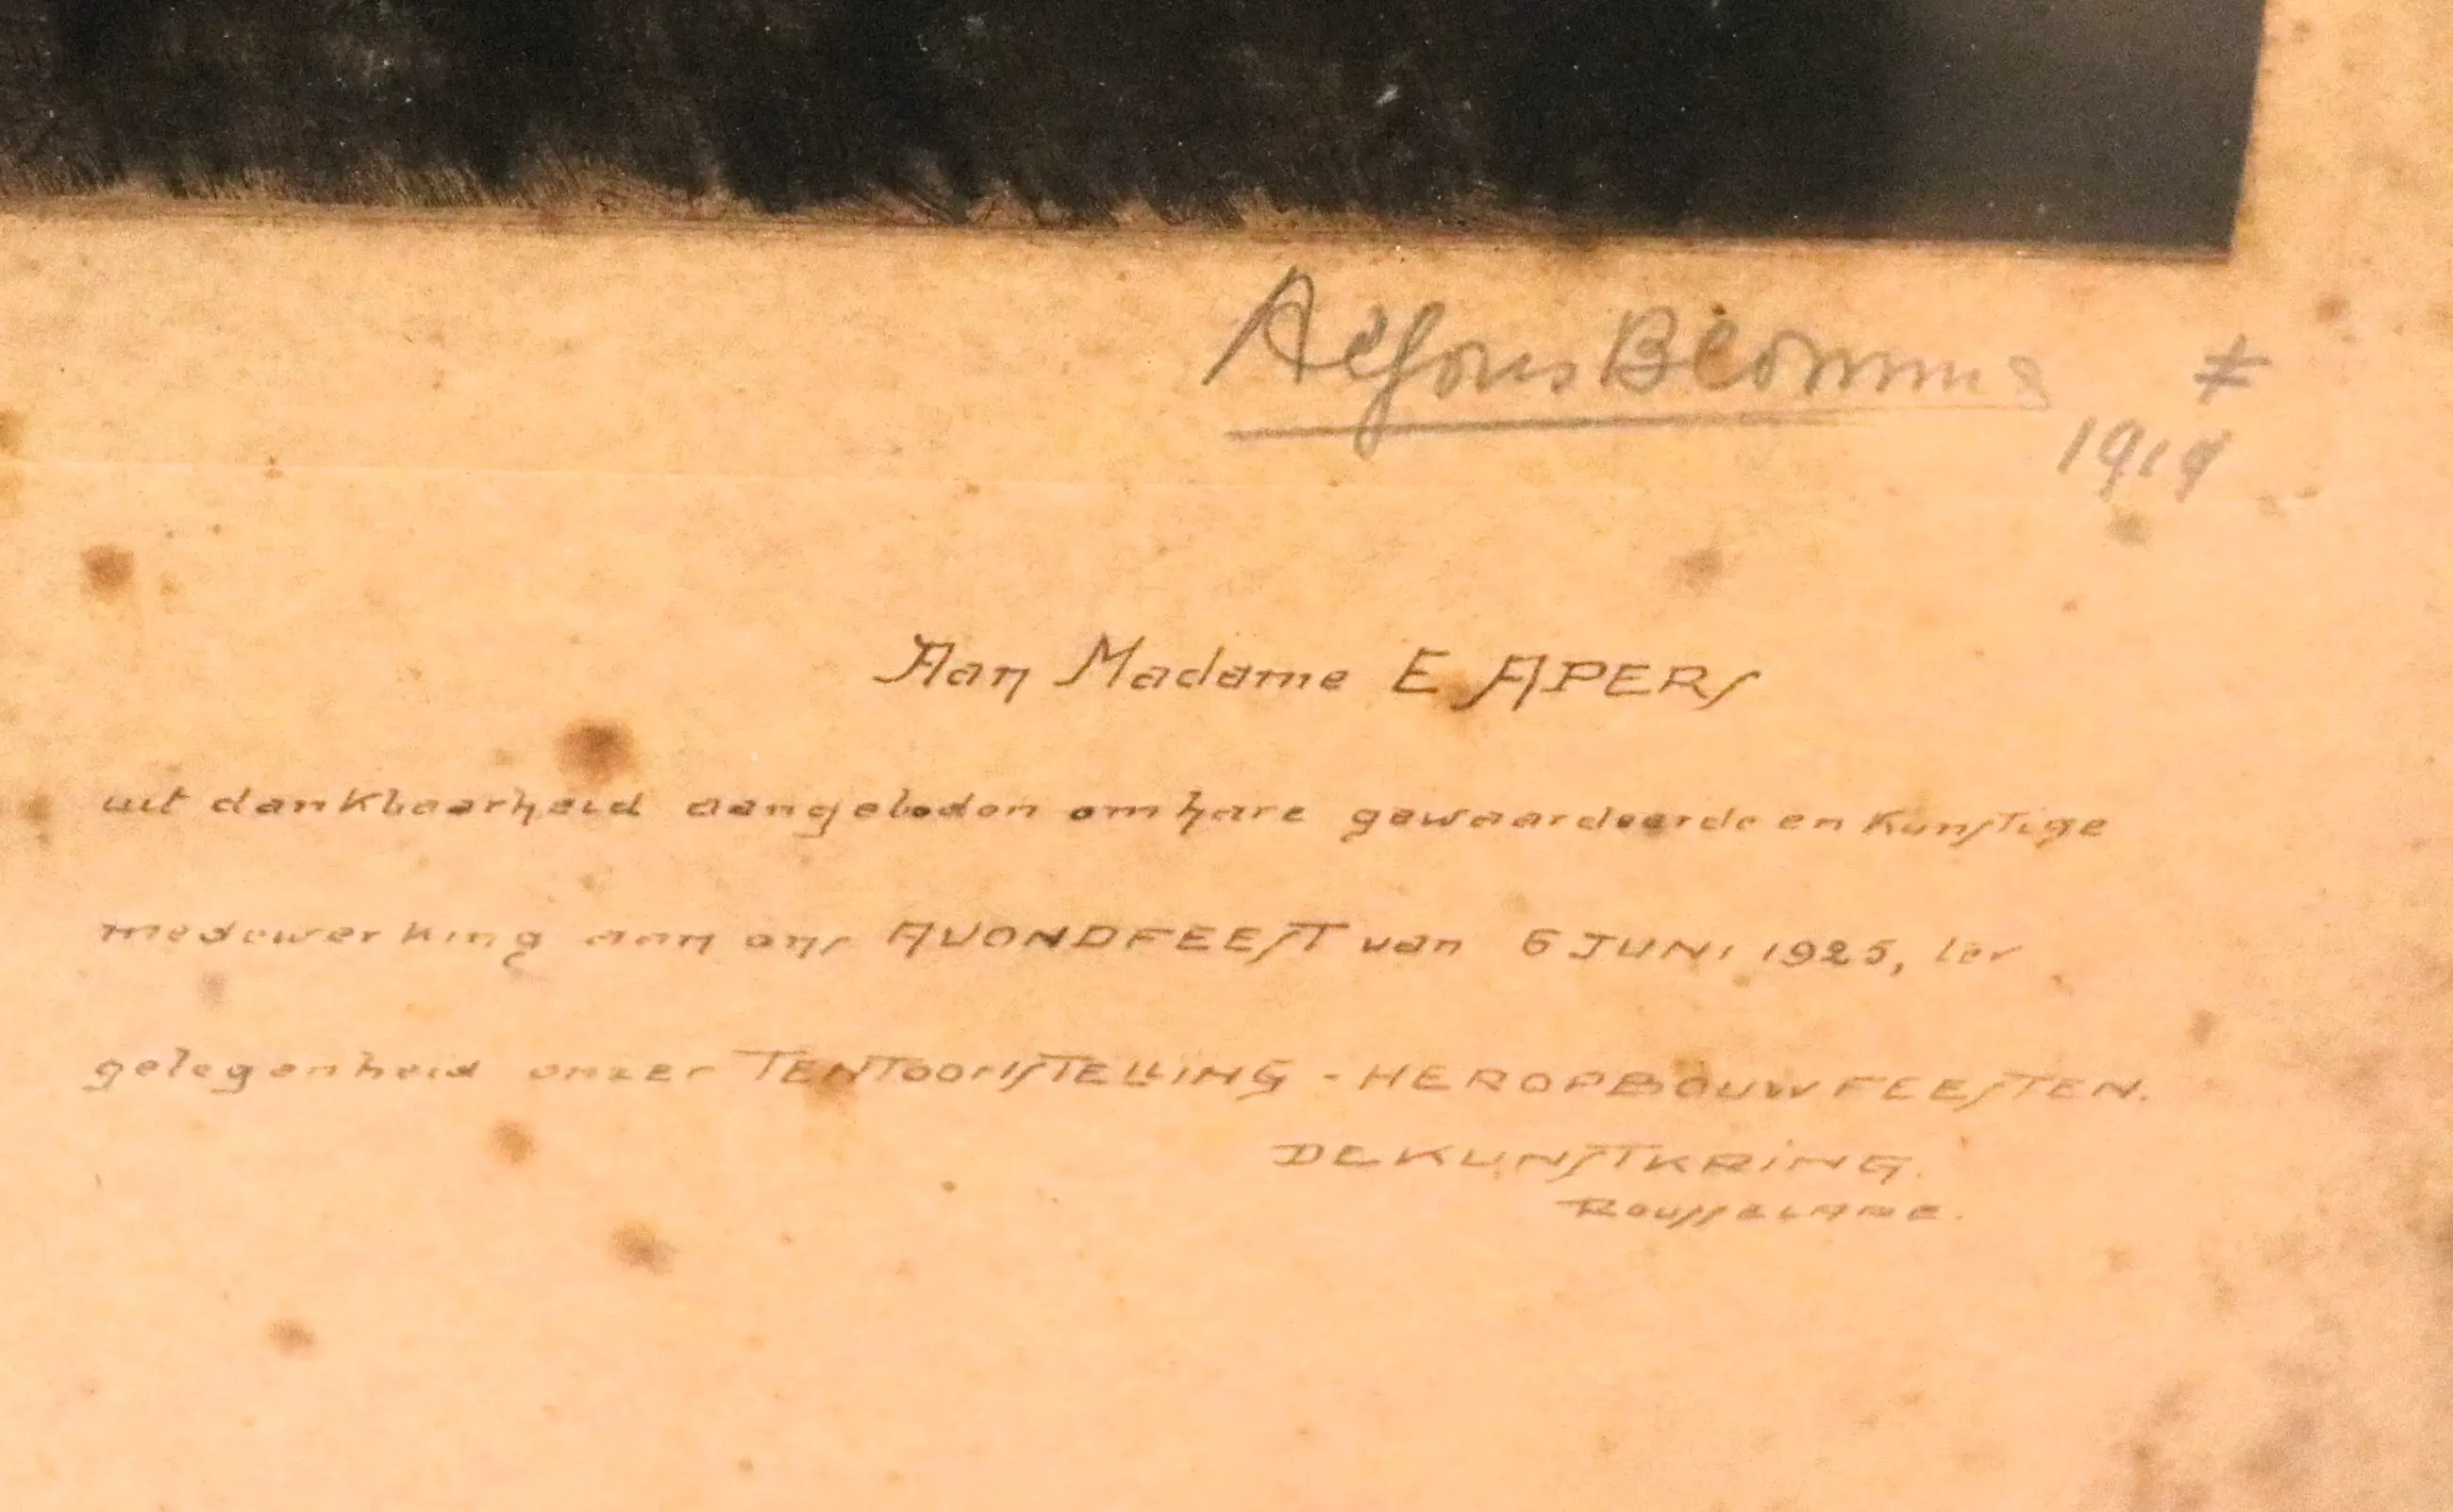 Alfons Blomme ≠
1919
Aan Madame E APERS
uit dankbaarheid aangeboden om hare gewaardeerde en Kunstige
medewerking aan ons AVONDFEEST van 6 JUNI 1925, ter
gelegenheid onzer TENTOONSTELLING - HEROPBOUWFEESTEN.
DE KUNSTKRING.
Rousselare.